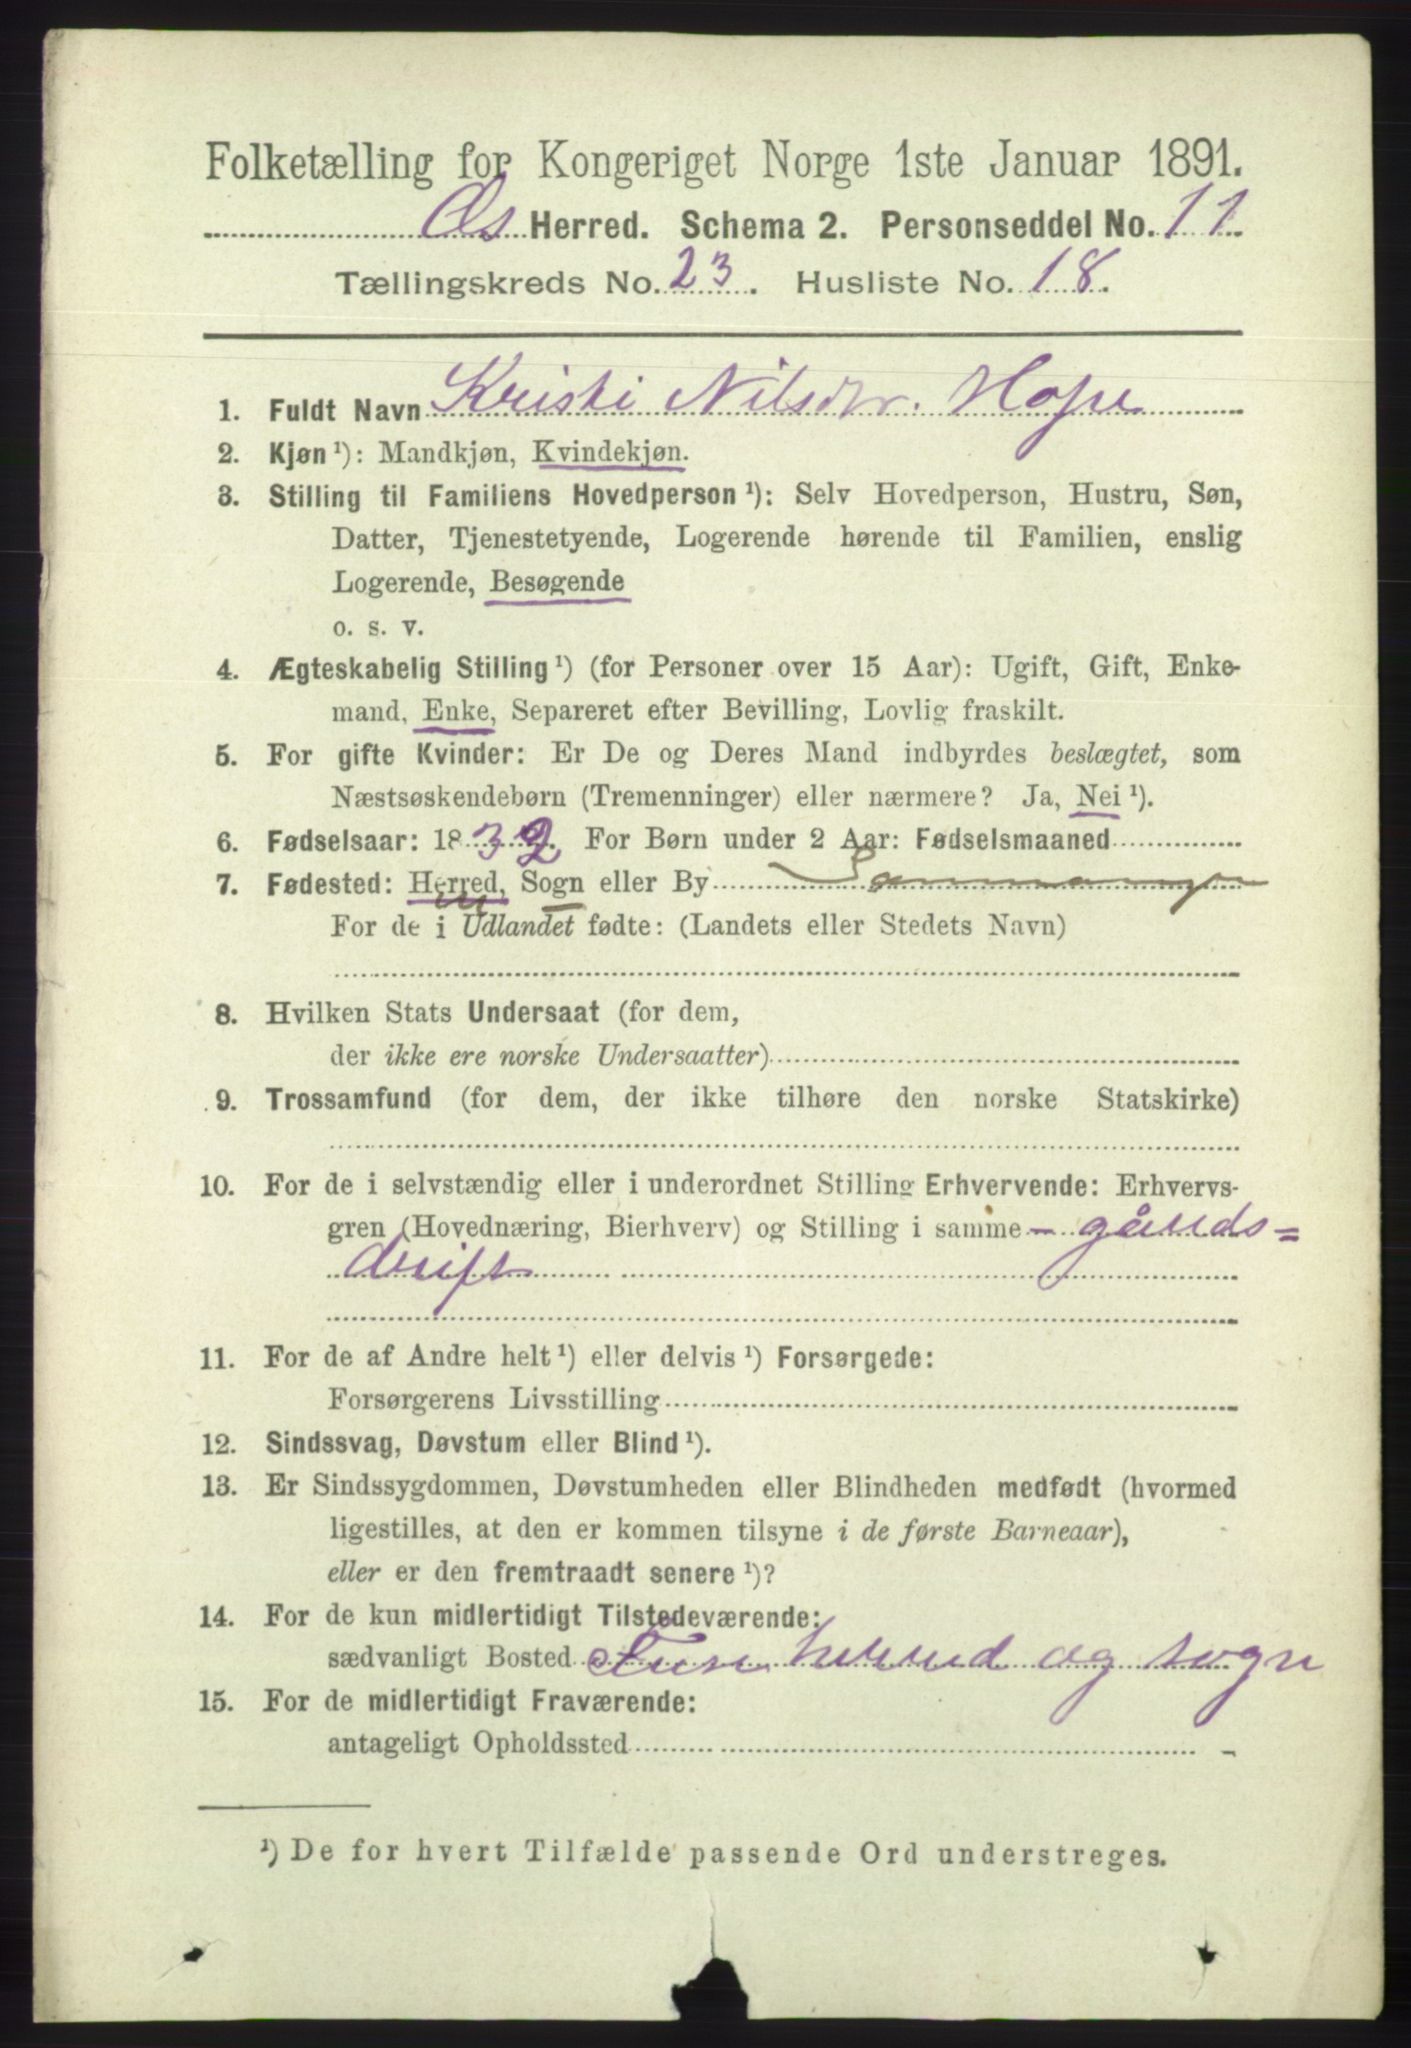 Folketælling for Kongeriget Norge 1ste Januar 1891.
Os Herred. Schema 2. Personseddel No. 11.
Tællingskreds No. 23. Husliste No. 18.
1. Fuldt Navn Kristi Nilsdtr. Hope
2. Kjøn ¹): Mandkjøn, Kvindekjøn.
3. Stilling til Familiens Hovedperson ¹): Selv Hovedperson, Hustru, Søn,
Datter, Tjenestetyende, Logerende hørende til Familien, enslig
Logerende, Besøgende
o. s. v.
4. Ægteskabelig Stilling ¹) (for Personer over 15 Aar): Ugift, Gift, Enke-
mand, Enke, Separeret efter Bevilling, Lovlig fraskilt.
5. For gifte Kvinder: Er De og Deres Mand indbyrdes beslægtet, som
Næstsøskendebørn (Tremenninger) eller nærmere? Ja, Nei ¹).
6. Fødselsaar: 1832. For Børn under 2 Aar: Fødselsmaaned
7. Fødested: Herred, Sogn eller By Sammanger
For de i Udlandet fødte: (Landets eller Stedets Navn)
8. Hvilken Stats Undersaat (for dem,
der ikke ere norske Undersaatter)
9. Trossamfund (for dem, der ikke tilhøre den norske Statskirke)
10. For de i selvstændig eller i underordnet Stilling Erhvervende: Erhvervs-
gren (Hovednæring, Bierhverv) og Stilling i samme - gårds=
drift
11. For de af Andre helt ¹) eller delvis ¹) Forsørgede:
Forsørgerens Livsstilling
12. Sindssvag, Døvstum eller Blind ¹).
13. Er Sindssygdommen, Døvstumheden eller Blindheden medfødt (hvormed
ligestilles, at den er kommen tilsyne i de første Barneaar),
eller er den fremtraadt senere ¹)?
14. For de kun midlertidigt Tilstedeværende:
sædvanligt Bosted Fuse herred og sogn
15. For de midlertidigt Fraværende:
antageligt Opholdssted
¹) De for hvert Tilfælde passende Ord understreges.